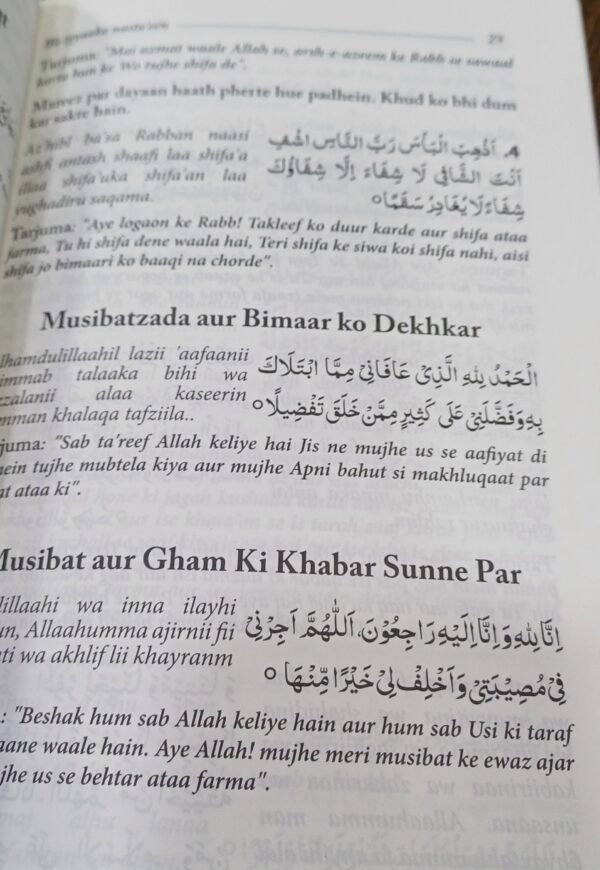 29
Tarjuma: "Mai azmat waale Allah se, arsh-e-azeem ke Rabb se sawaal
karta hun ke Wo tujhe shifa de".
Mareez par dayaan haath pherte hue padhein. Khud ko bhi dum
kar sakte hain.
Az'hibl ba'sa Rabban naasi
ashfi antash shaafi laa shifa'a
illaa shifa'uka shifa'an laa
yughadiru saqama.
٤. اَذْهِبِ الْبَأْسَ رَبَّ النَّاسِ اشْفِ
اَنْتَ الشَّافِيْ لَا شِفَاءَ اِلَّا شِفَاؤُكَ
شِفَاءً لَا يُغَادِرُ سَقَمًا○
Tarjuma: "Aye logaon ke Rabb! Takleef ko duur karde aur shifa ataa
farma, Tu hi shifa dene waala hai, Teri shifa ke siwa koi shifa nahi, aisi
shifa jo bimaari ko baaqi na chorde".
Musibatzada aur Bimaar ko Dekhkar
lhamdulillaahil lazii 'aafaanii
immab talaaka bihi wa
zzalanii alaa kaseerin
mman khalaqa tafziila..
اَلْحَمْدُ لِلهِ الَّذِيْ عَافَانِيْ مِمَّا ابْتَلَاكَ
بِهٖ وَفَضَّلَنِيْ عَلٰى كَثِيْرٍ مِمَّنْ خَلَقَ تَفْضِيْلًا○
juma: "Sab ta'reef Allah keliye hai Jis ne mujhe us se aafiyat di
ein tujhe mubtela kiya aur mujhe Apni bahut si makhluqaat par
at ataa ki".
Musibat aur Gham Ki Khabar Sunne Par
lillaahi wa inna ilayhi
un, Allaahumma ajirnii fii
ati wa akhlif lii khayranm
اِنَّا لِلهِ وَاِنَّا اِلَيْهِ رَاجِعُوْنَ، اَللّٰهُمَّ اَجِرْنِيْ
فِيْ مُصِيْبَتِيْ وَاَخْلِفْ لِيْ خَيْرًا مِّنْهَا ○
: "Beshak hum sab Allah keliye hain aur hum sab Usi ki taraf
aane waale hain. Aye Allah! mujhe meri musibat ke ewaz ajar
jhe us se behtar ataa farma".